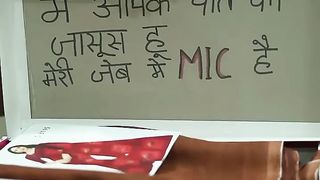 में आपके पति का
जासूस हूँ
मेरी जेब में MIC है